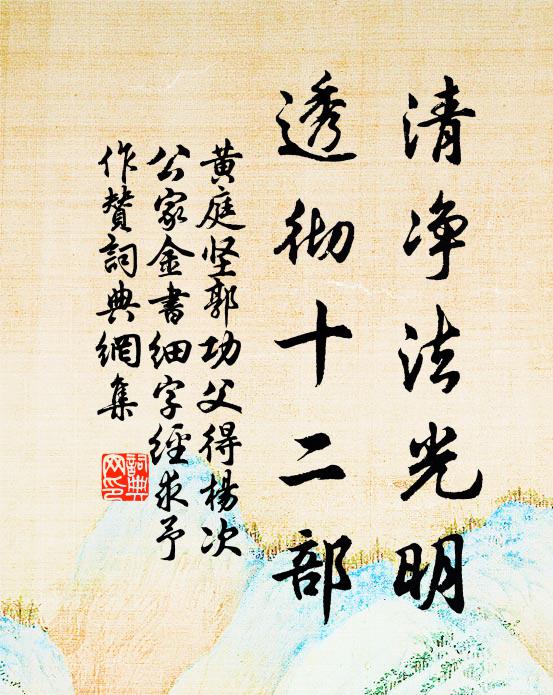 清净法光明
透彻十二部
黄庭坚郭功父得杨次
公家金书细字经求予
作赞词典网集
词典
网印